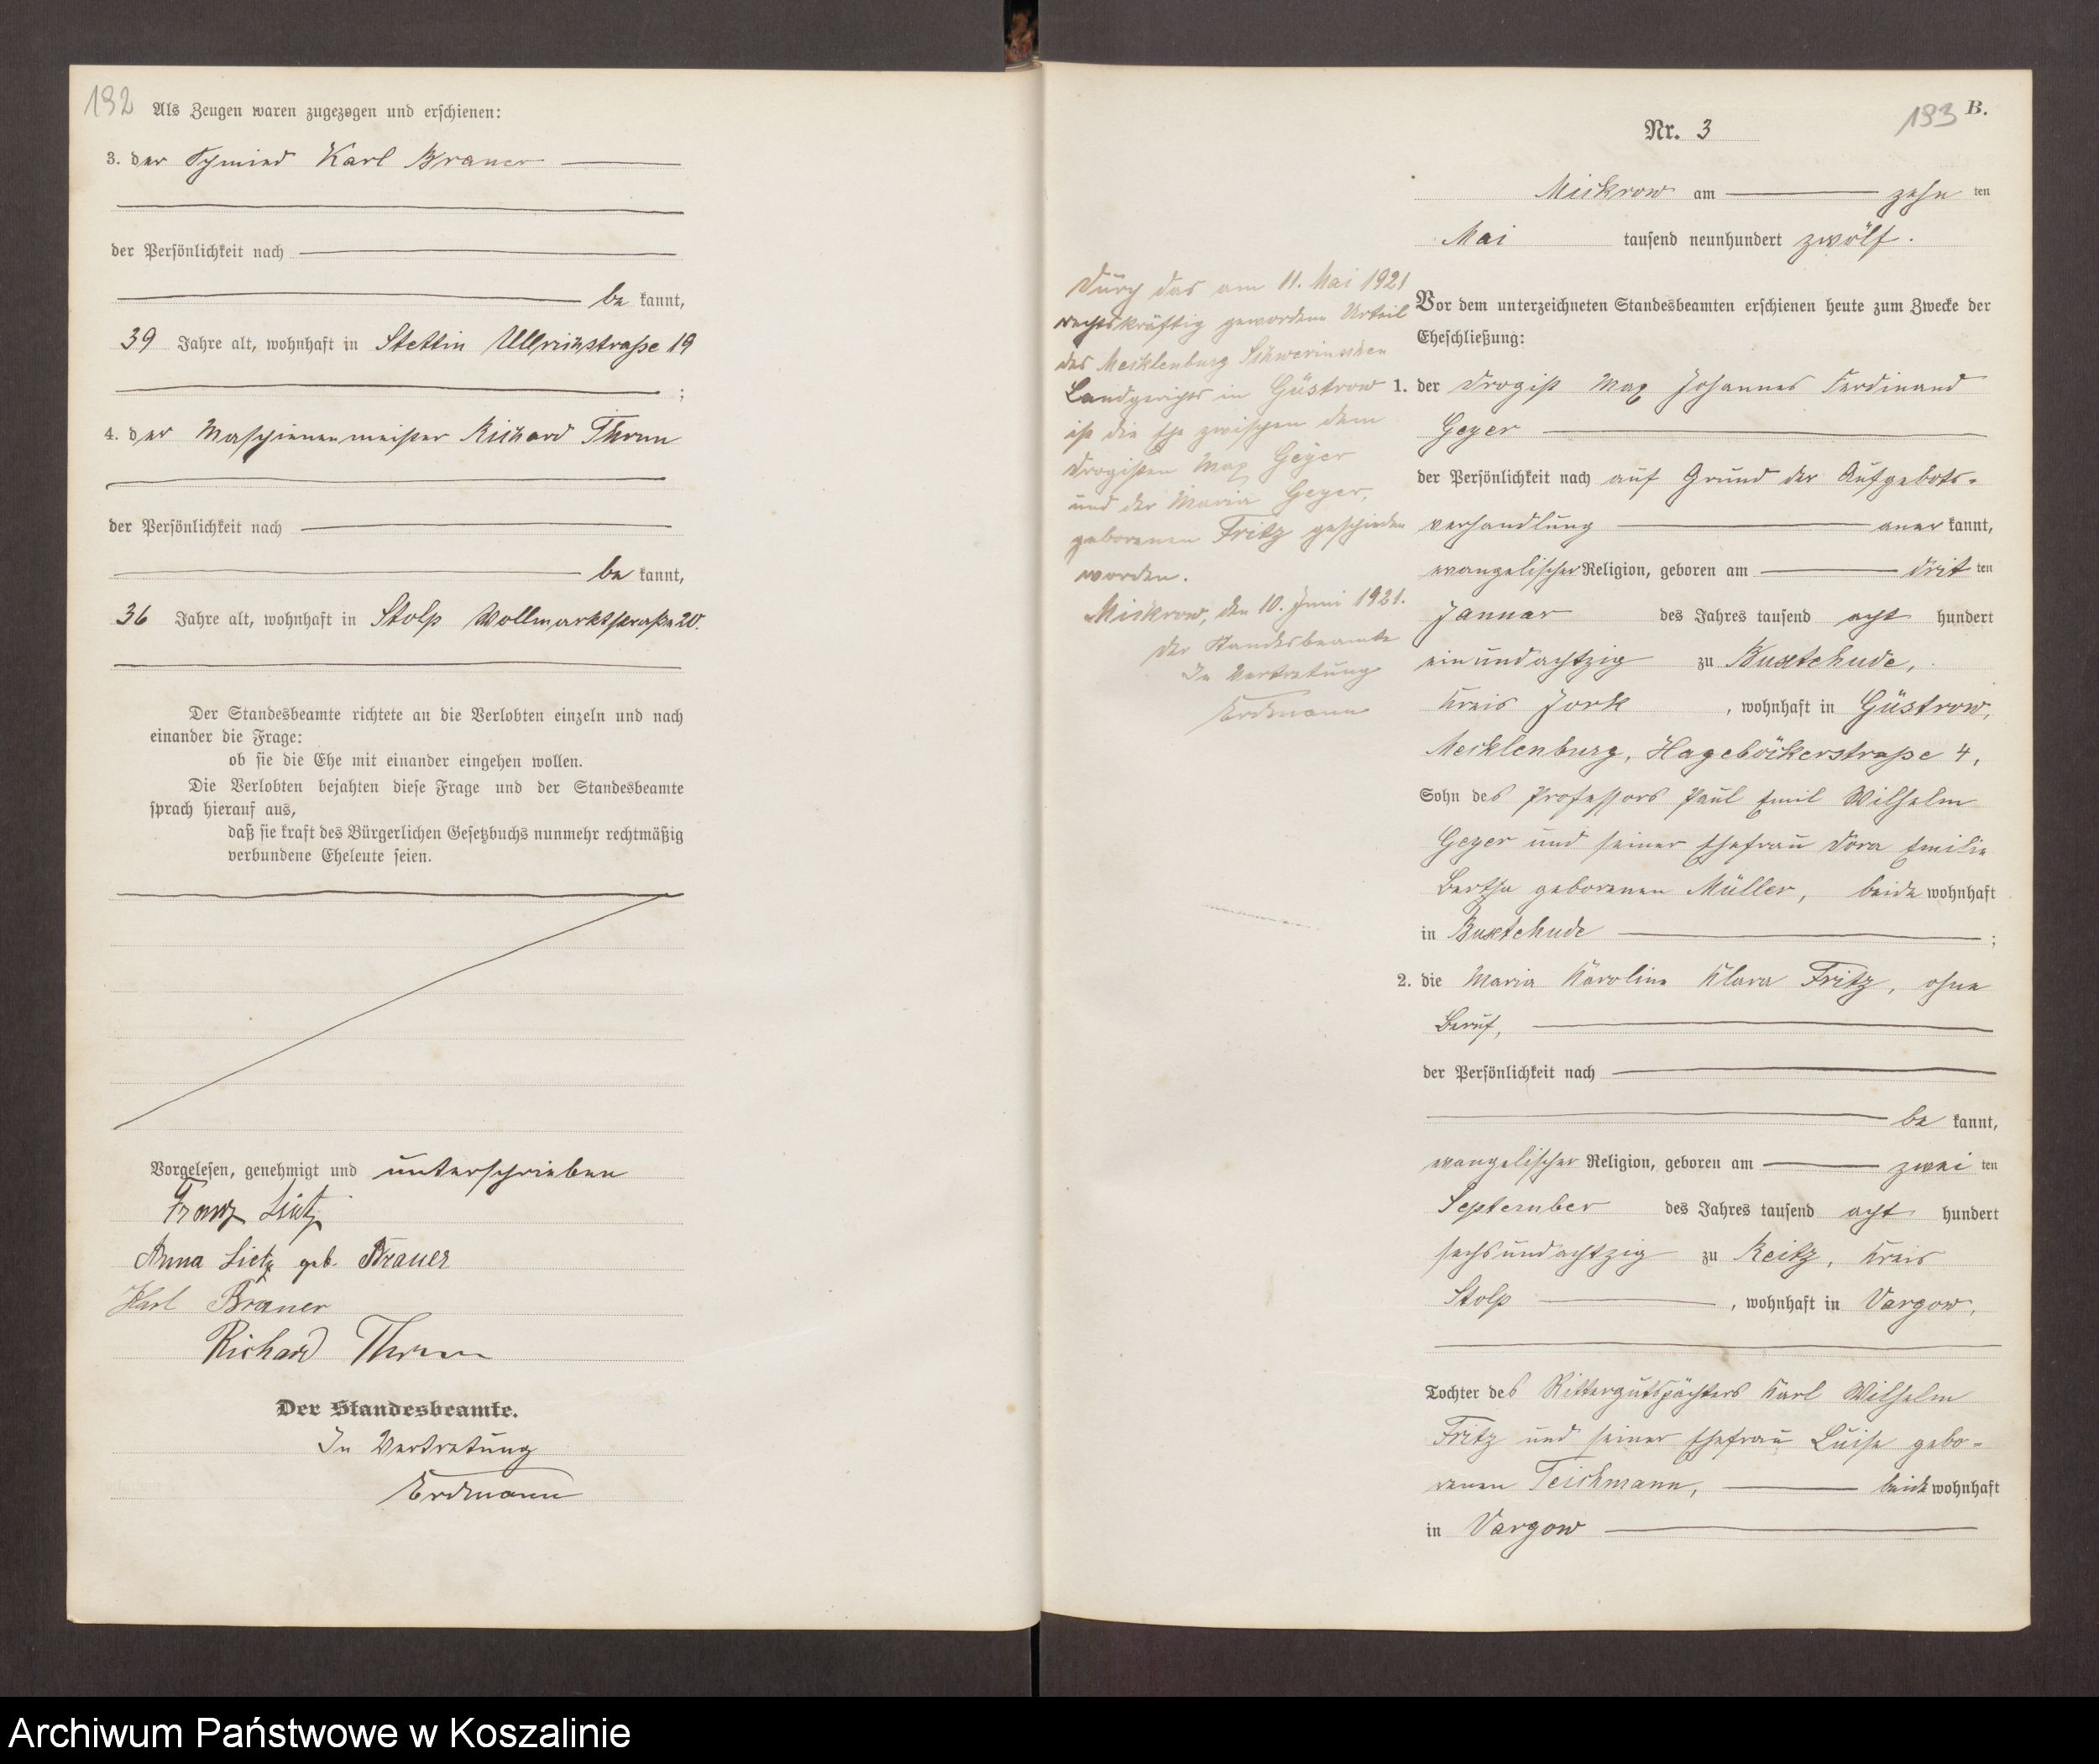 192
Als Zeugen waren zugezogen und erschienen:
3. der Schmied Karl Brauer
der Persönlichkeit nach
be kannt,
39 Jahre alt, wohnhaft in Stettin Ullrichstraße 19
;
4. der Maschienenmeister Richard Thrun
der Persönlichkeit nach
be kannt,
36 Jahre alt, wohnhaft in Stolp Wollmarktstraße 20.
Der Standesbeamte richtete an die Verlobten einzeln und nach
einander die Frage:
ob sie die Ehe mit einander eingehen wollen.
Die Verlobten bejahten diese Frage und der Standesbeamte
sprach hierauf aus,
daß sie kraft des Bürgerlichen Gesetzbuchs nunmehr rechtmäßig
verbundene Eheleute seien.
Vorgelesen, genehmigt und unterschrieben
Franz Lietz
Anna Lietz geb. Brauer
Karl Brauer
Richard Thrun
Der Standesbeamte.
In Vertretung
Erdmann
193 B.
Nr. 3
Mickrow am zehn ten
Mai tausend neunhundert zwölf.
Vor dem unterzeichneten Standesbeamten erschienen heute zum Zwecke der
Eheschließung:
1. der Drogist Max Johannes Ferdinand
Geyer
der Persönlichkeit nach auf Grund der Aufgebots-
verhandlung aner kannt,
evangelischer Religion, geboren am drit ten
Januar des Jahres tausend acht hundert
einundachtzig zu Buxtehude,
Kreis Jork, wohnhaft in Güstrow,
Mecklenburg, Hageböckerstraße 4,
Sohn des Professors Paul Emil Wilhelm
Geyer und seiner Ehefrau Dora Emilie
Bertha geborenen Müller, beide wohnhaft
in Buxtehude ;
2. die Maria Karoline Klara Fritz, ohne
Beruf,
der Persönlichkeit nach
be kannt,
evangelischer Religion, geboren am zwei ten
September des Jahres tausend acht hundert
sechsundachtzig zu Reitz, Kreis
Stolp, wohnhaft in Vargow,
Tochter des Rittergutspächters Karl Wilhelm
Fritz und seiner Ehefrau Luise gebo-
renen Teichmann, beide wohnhaft
in Vargow
Durch das am 11. Mai 1921
rechtskräftig gewordene Urteil
des Mecklenburg Schwerinschen
Landgerichts in Güstrow
ist die Ehe zwischen dem
Drogisten Max Geyer
und der Maria Geyer,
geborenen Fritz geschieden
worden.
Mickrow, den 10. Juni 1921.
Der Standesbeamte
In Vertretung
Erdmann
Archiwum Państwowe w Koszalinie